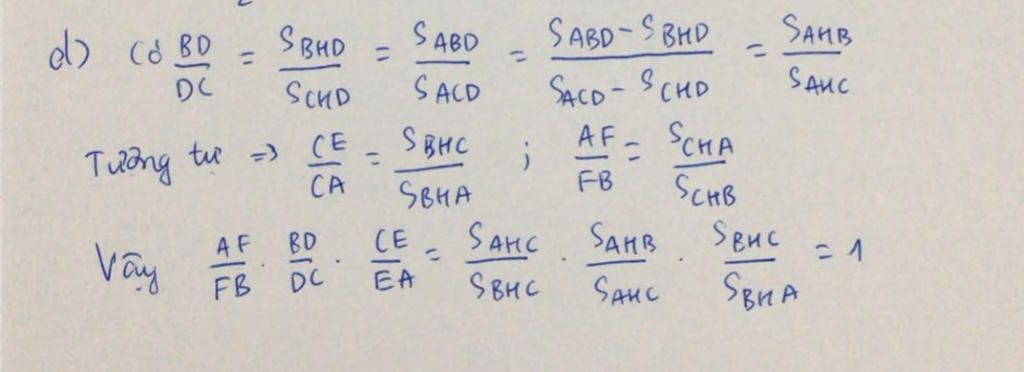 d) Có BD/DC = S_BHD/S_CHD = S_ABD/S_ACD = (S_ABD - S_BHD)/(S_ACD - S_CHD) = S_AHB/S_AHC
Tương tự => CE/CA = S_BHC/S_BHA ; AF/FB = S_CHA/S_CHB
Vậy AF/FB . BD/DC . CE/EA = S_AHC/S_BHC . S_AHB/S_AHC . S_BHC/S_BHA = 1